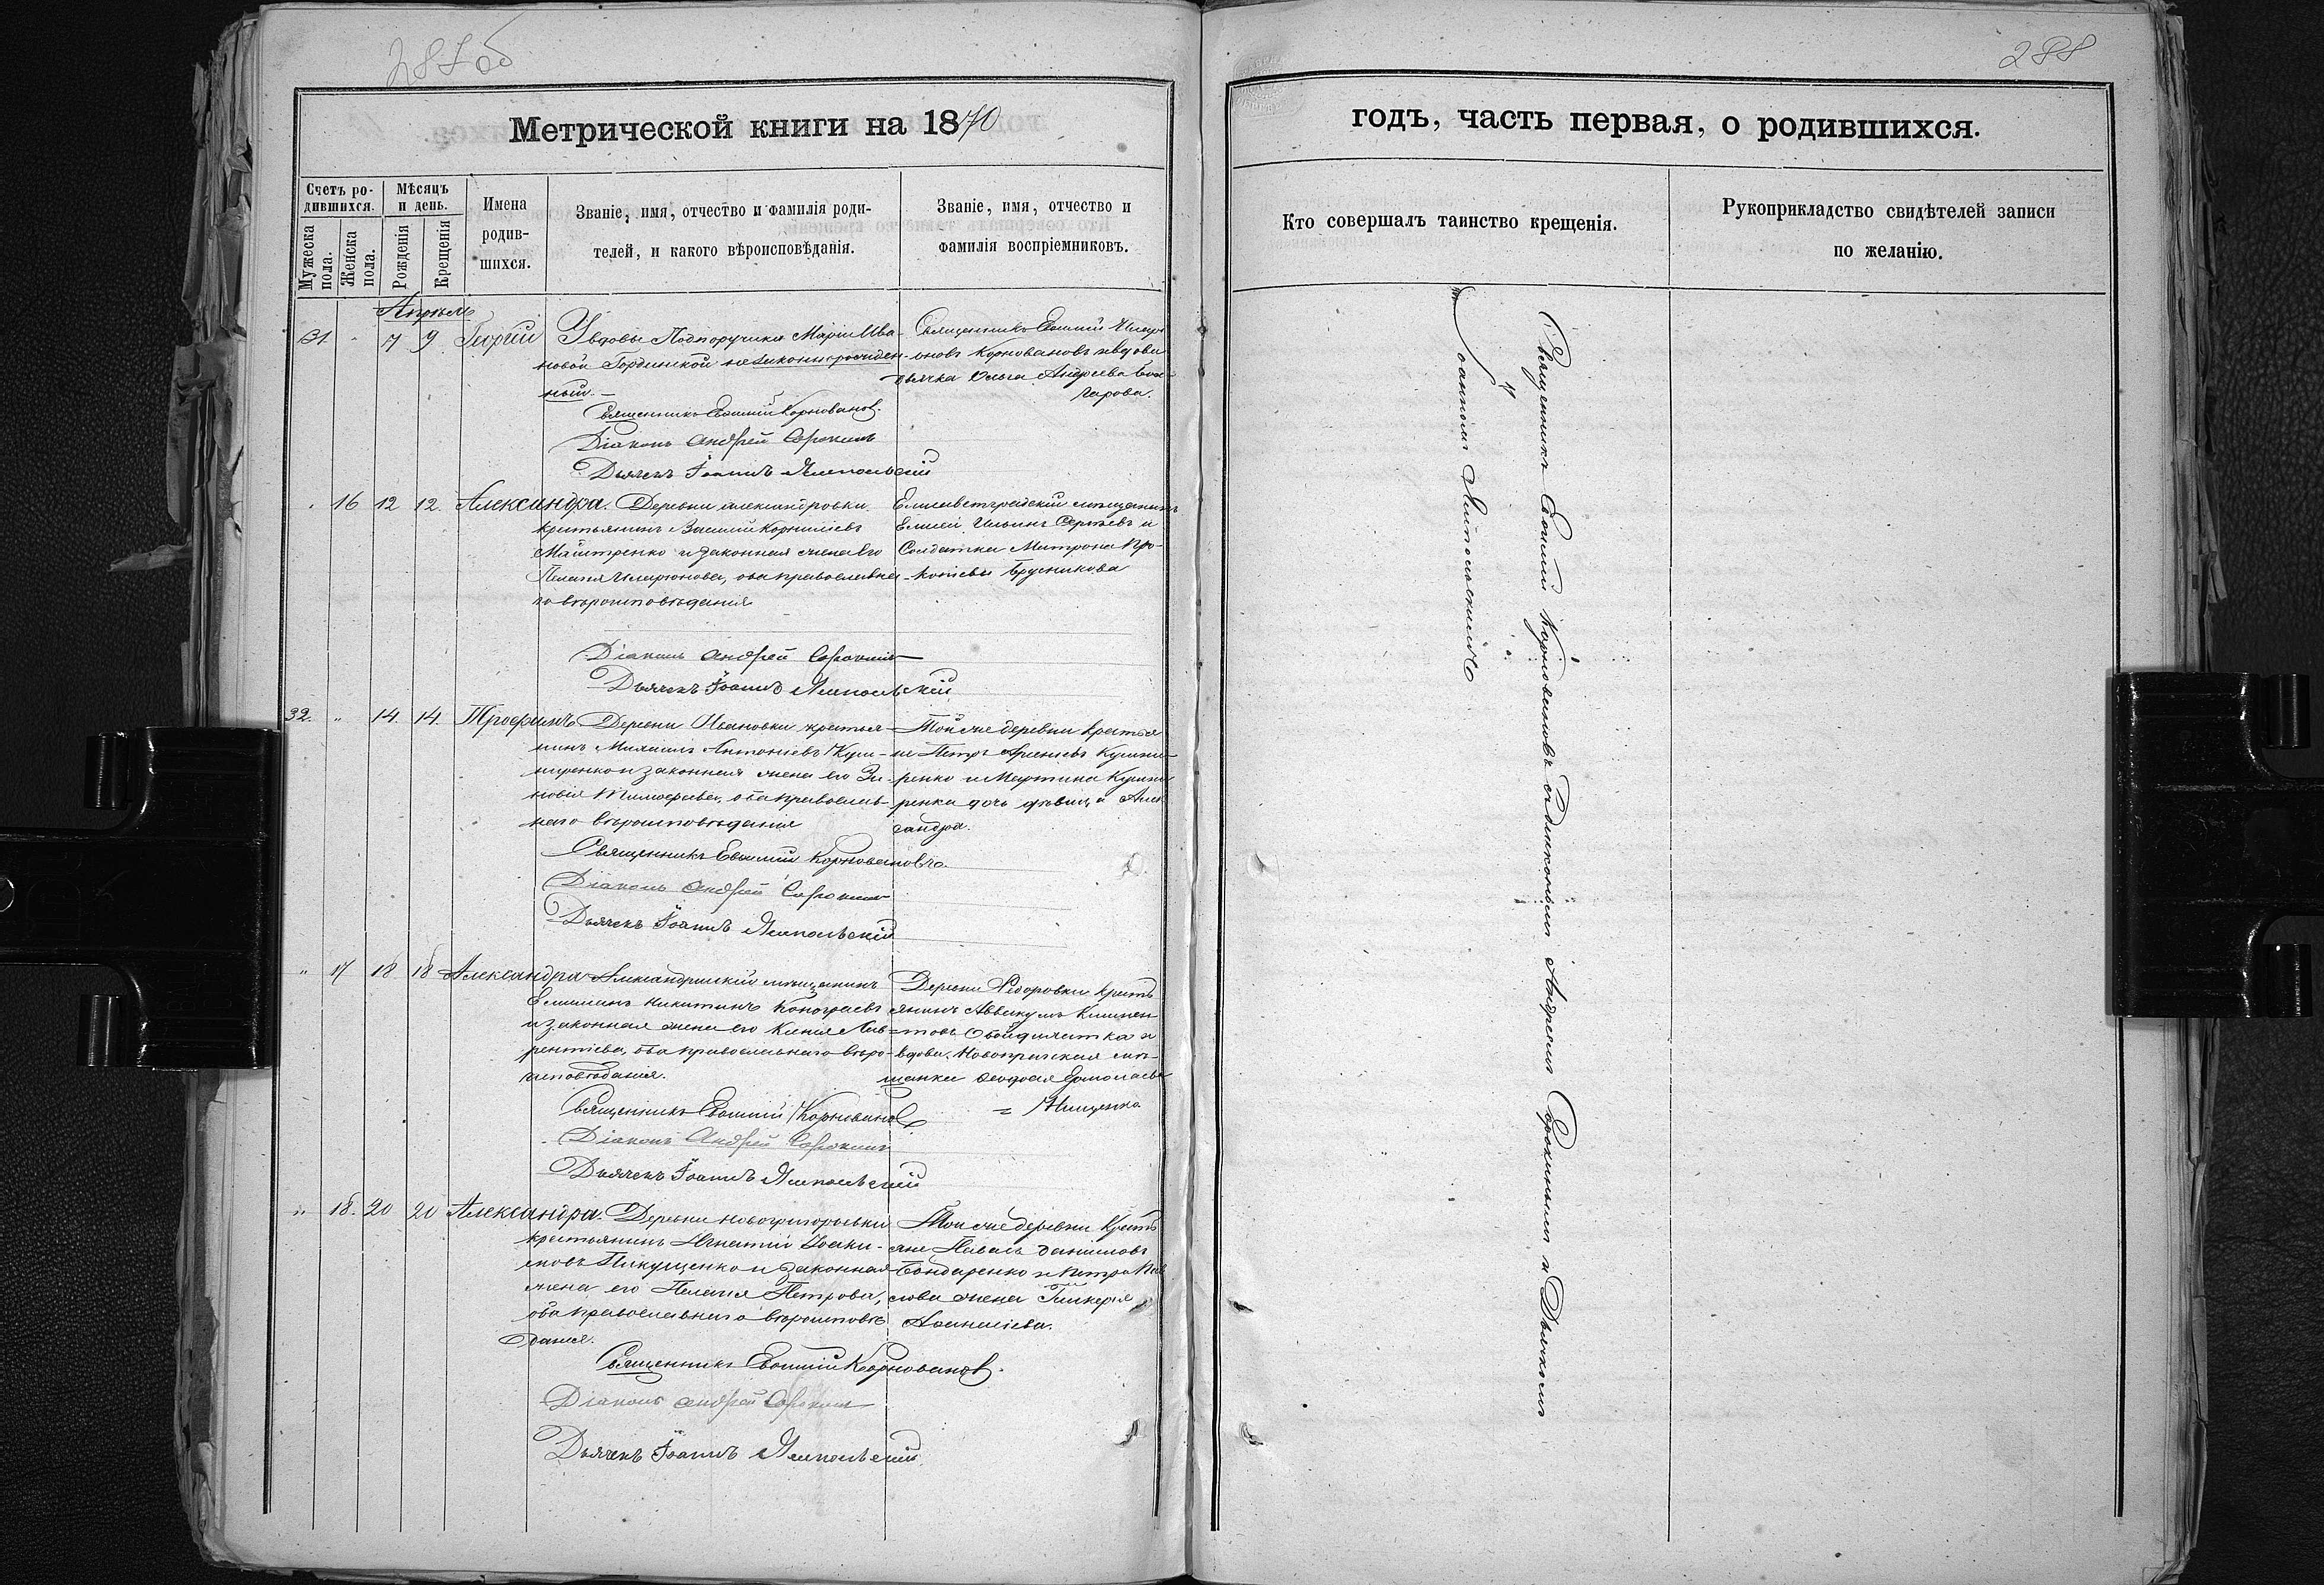 287об
288
Метрической книги на 1870
годъ, часть первая, о родившихся.
Счетъ ро-
дившихся.
Мѣсяцъ
и день.
Мужеска
пола.
Женска
пола.
Рожденія
Крещенія
Имена
родив-
шихся.
Званіе, имя, отчество и фамилія роди-
телей, и какого вѣроисповѣданія.
Званіе, имя, отчество и
фамилія воспріемниковъ.
Кто совершалъ таинство крещенія.
Рукоприкладство свидѣтелей записи
по желанію.
Апрѣль
31 " 7 9 Георгій
У вдовы Подпоручика Маріи Ива-
новой незаконнорожден-
ный.
Священникъ Евѳимій Корнованов.
Діаконъ Андрей Сорокинъ
Дьячекъ Іоаннъ Ямпольскій
Священникъ Евѳимій
Корновановъ и вдова
дьячка Ольга Андреева
" 16 12 12. Александра.
Деревни Александровки
крестьянинъ Василій Корниліевъ
и законная жена его
Пелагія Иларіонова, оба православна-
го вѣроисповѣданія
Діаконъ Андрей Сорокинъ
Дьячекъ Іоаннъ Ямпольскій
Елисаветградскій мѣщанинъ
Елисей Ильинъ Сергѣевъ и
Солдатка Матрона Про-
кофіева Брусникова
32. " 14. 14. Трофимъ
Деревни Ивановки крестья-
нинъ Михаилъ Антоніевъ Куш-
ниренко и законная жена его Зи-
новія Тимофѣева, оба православ-
наго вѣроисповѣданія
Священникъ Евѳимій Корновановъ.
Діаконъ Андрей Сорокинъ
Дьячекъ Іоаннъ Ямпольскій
Той же деревни крестья-
не Петръ Арсеніевъ Кушни-
ренко и Мартина Кушни-
ренка дочь дѣвица Алек-
сандра.
" 17 18 18 Александра
Александрійскій мѣщанинъ
Емиліанъ Никитинъ
и законная жена его Ксенія Лав-
рентіева, оба православнаго вѣро-
исповѣданія.
Священникъ Евѳимій Корнованов
Діаконъ Андрей Сорокинъ
Дьячекъ Іоаннъ Ямпольскій
Деревни Ѳедоровки кресть-
янинъ Аввакумъ Климен-
товъ и
вдова, Новопражская мѣ-
щанка Ермолаева
= Нищенко
" 18. 20 20 Александра.
Деревни Новогригорьевки
крестьянинъ Игнатій Іоаки-
мовъ и законная
жена его Пелагія Петрова,
оба православнаго вѣроисповѣ-
данія.
Священникъ Евѳимій Корнованов.
Діаконъ Андрей Сорокинъ
Дьячекъ Іоаннъ Ямпольскій
Той же деревни кресть-
яне Павелъ Даниловъ
Бондаренко и Петра Пав-
лова жена Гликерія
Аѳанасіева.
Священникъ Евѳимій Корновановъ съ Діакономъ Андреемъ Сорокинымъ и Дьячкомъ
Іоанномъ Ямпольскимъ